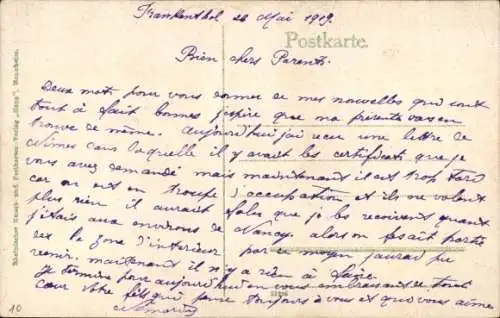 Frankenthal 26 Mai 1919.
Postkarte.
Bien chers Parents
Deux mots pour vous donner de mes nouvelles qui sont
tout à fait bonnes j'espère que ma présente vous en
trouve de même. Aujourd'hui j'ai reçu une lettre de
Nimes dans laquelle il y avait les certificats que je
vous avez demandé mais maintenant il est trop tard
car on est en troupe d'occupation et ils ne valent
plus rien il aurait falu que je les recoivent quant
j'étais aux environs de Nancy. alors on fesait partie
de la zone d'intérieur par ce moyen j'aurai pu
venir. maintenant il n'y a rien à faire.
Je termine pour aujourd'hui en vous embrassant de tout
cœur Votre fils qui pense toujours à vous et que vous aime
Rheinischer Kunst- und Postkarten-Verlag Mannheim.
10